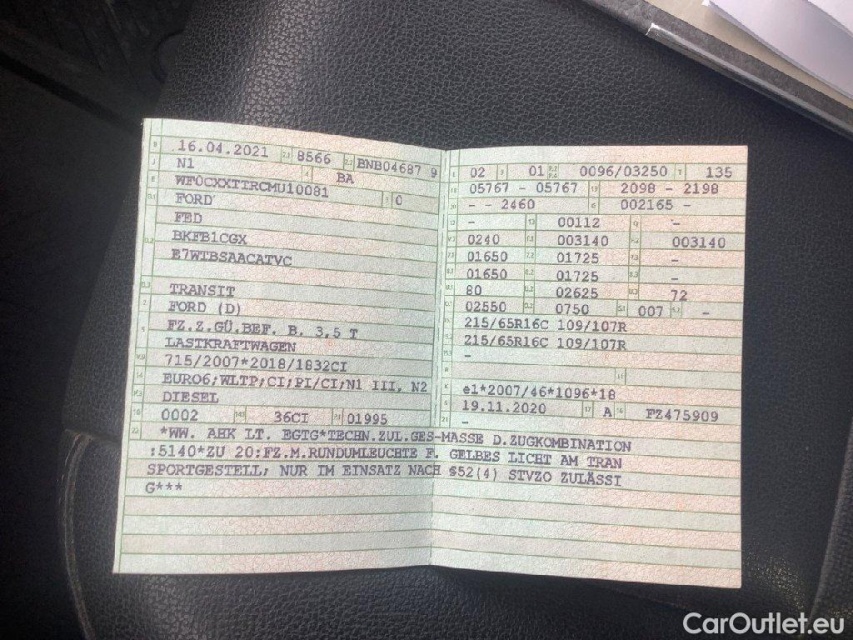 16.04.2021 8566 BNB04687 9
N1 BA
WF0CXXTTRCMU10081 0
FORD
FED
BKFB1CGX
E7WTBSAACATVC
TRANSIT
FORD (D)
FZ.Z.GÜ.BEF. B. 3,5 T
LASTKRAFTWAGEN
715/2007*2018/1832CI
EURO6;WLTP;CI;PI/CI;N1 III, N2
DIESEL
0002 36CI 01995
02 01 0096/03250 135
05767 - 05767 2098 - 2198
- - 2460 002165 -
- 00112 -
0240 003140 003140
01650 01725 -
01650 01725 -
80 02625 72
02550 0750 007 -
215/65R16C 109/107R
215/65R16C 109/107R
-
e1*2007/46*1096*18
19.11.2020 A PZ475909
-
*WW. AHK LT. EGTG*TECHN.ZUL.GES-MASSE D.ZUGKOMBINATION
:5140*ZU 20:FZ.M.RUNDUMLEUCHTE F. GELBES LICHT AM TRAN
SPORTGESTELL; NUR IM EINSATZ NACH §52(4) STVZO ZULÄSSI
G***
CarOutlet.eu